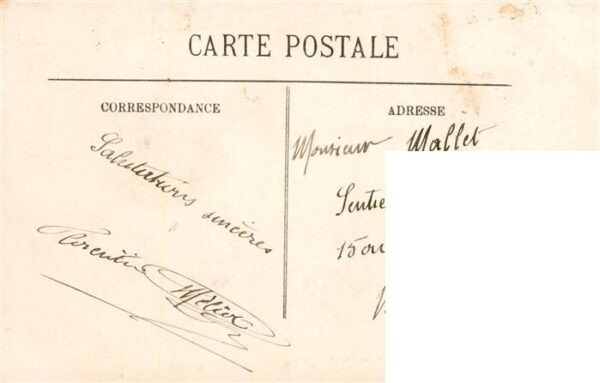 CARTE POSTALE
CORRESPONDANCE
Salutations sincères
Florentin
ADRESSE
Monsieur Mallet
Sentie
15